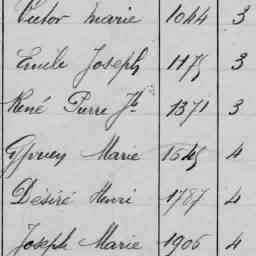 Victor Marie 1044 3
Emile Joseph 1175 3
René Pierre Jh 1371 3
Marie 1545 4
Désiré Henri 1787 4
Joseph Marie 1906 4